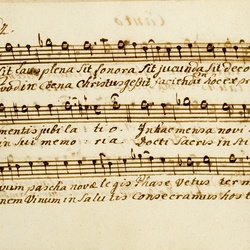 Sit laus plena Sit sonora Sit jucunda Sit deco
vod in cœna Christus geßit faciendũ hoc expr
mentis jubilatio. Inhac mensa novi
in sui memoria Docti Sacris in sti
vum pascha novæ legis Phase Vetus term
nem Vinum in Salutis Consecramus host